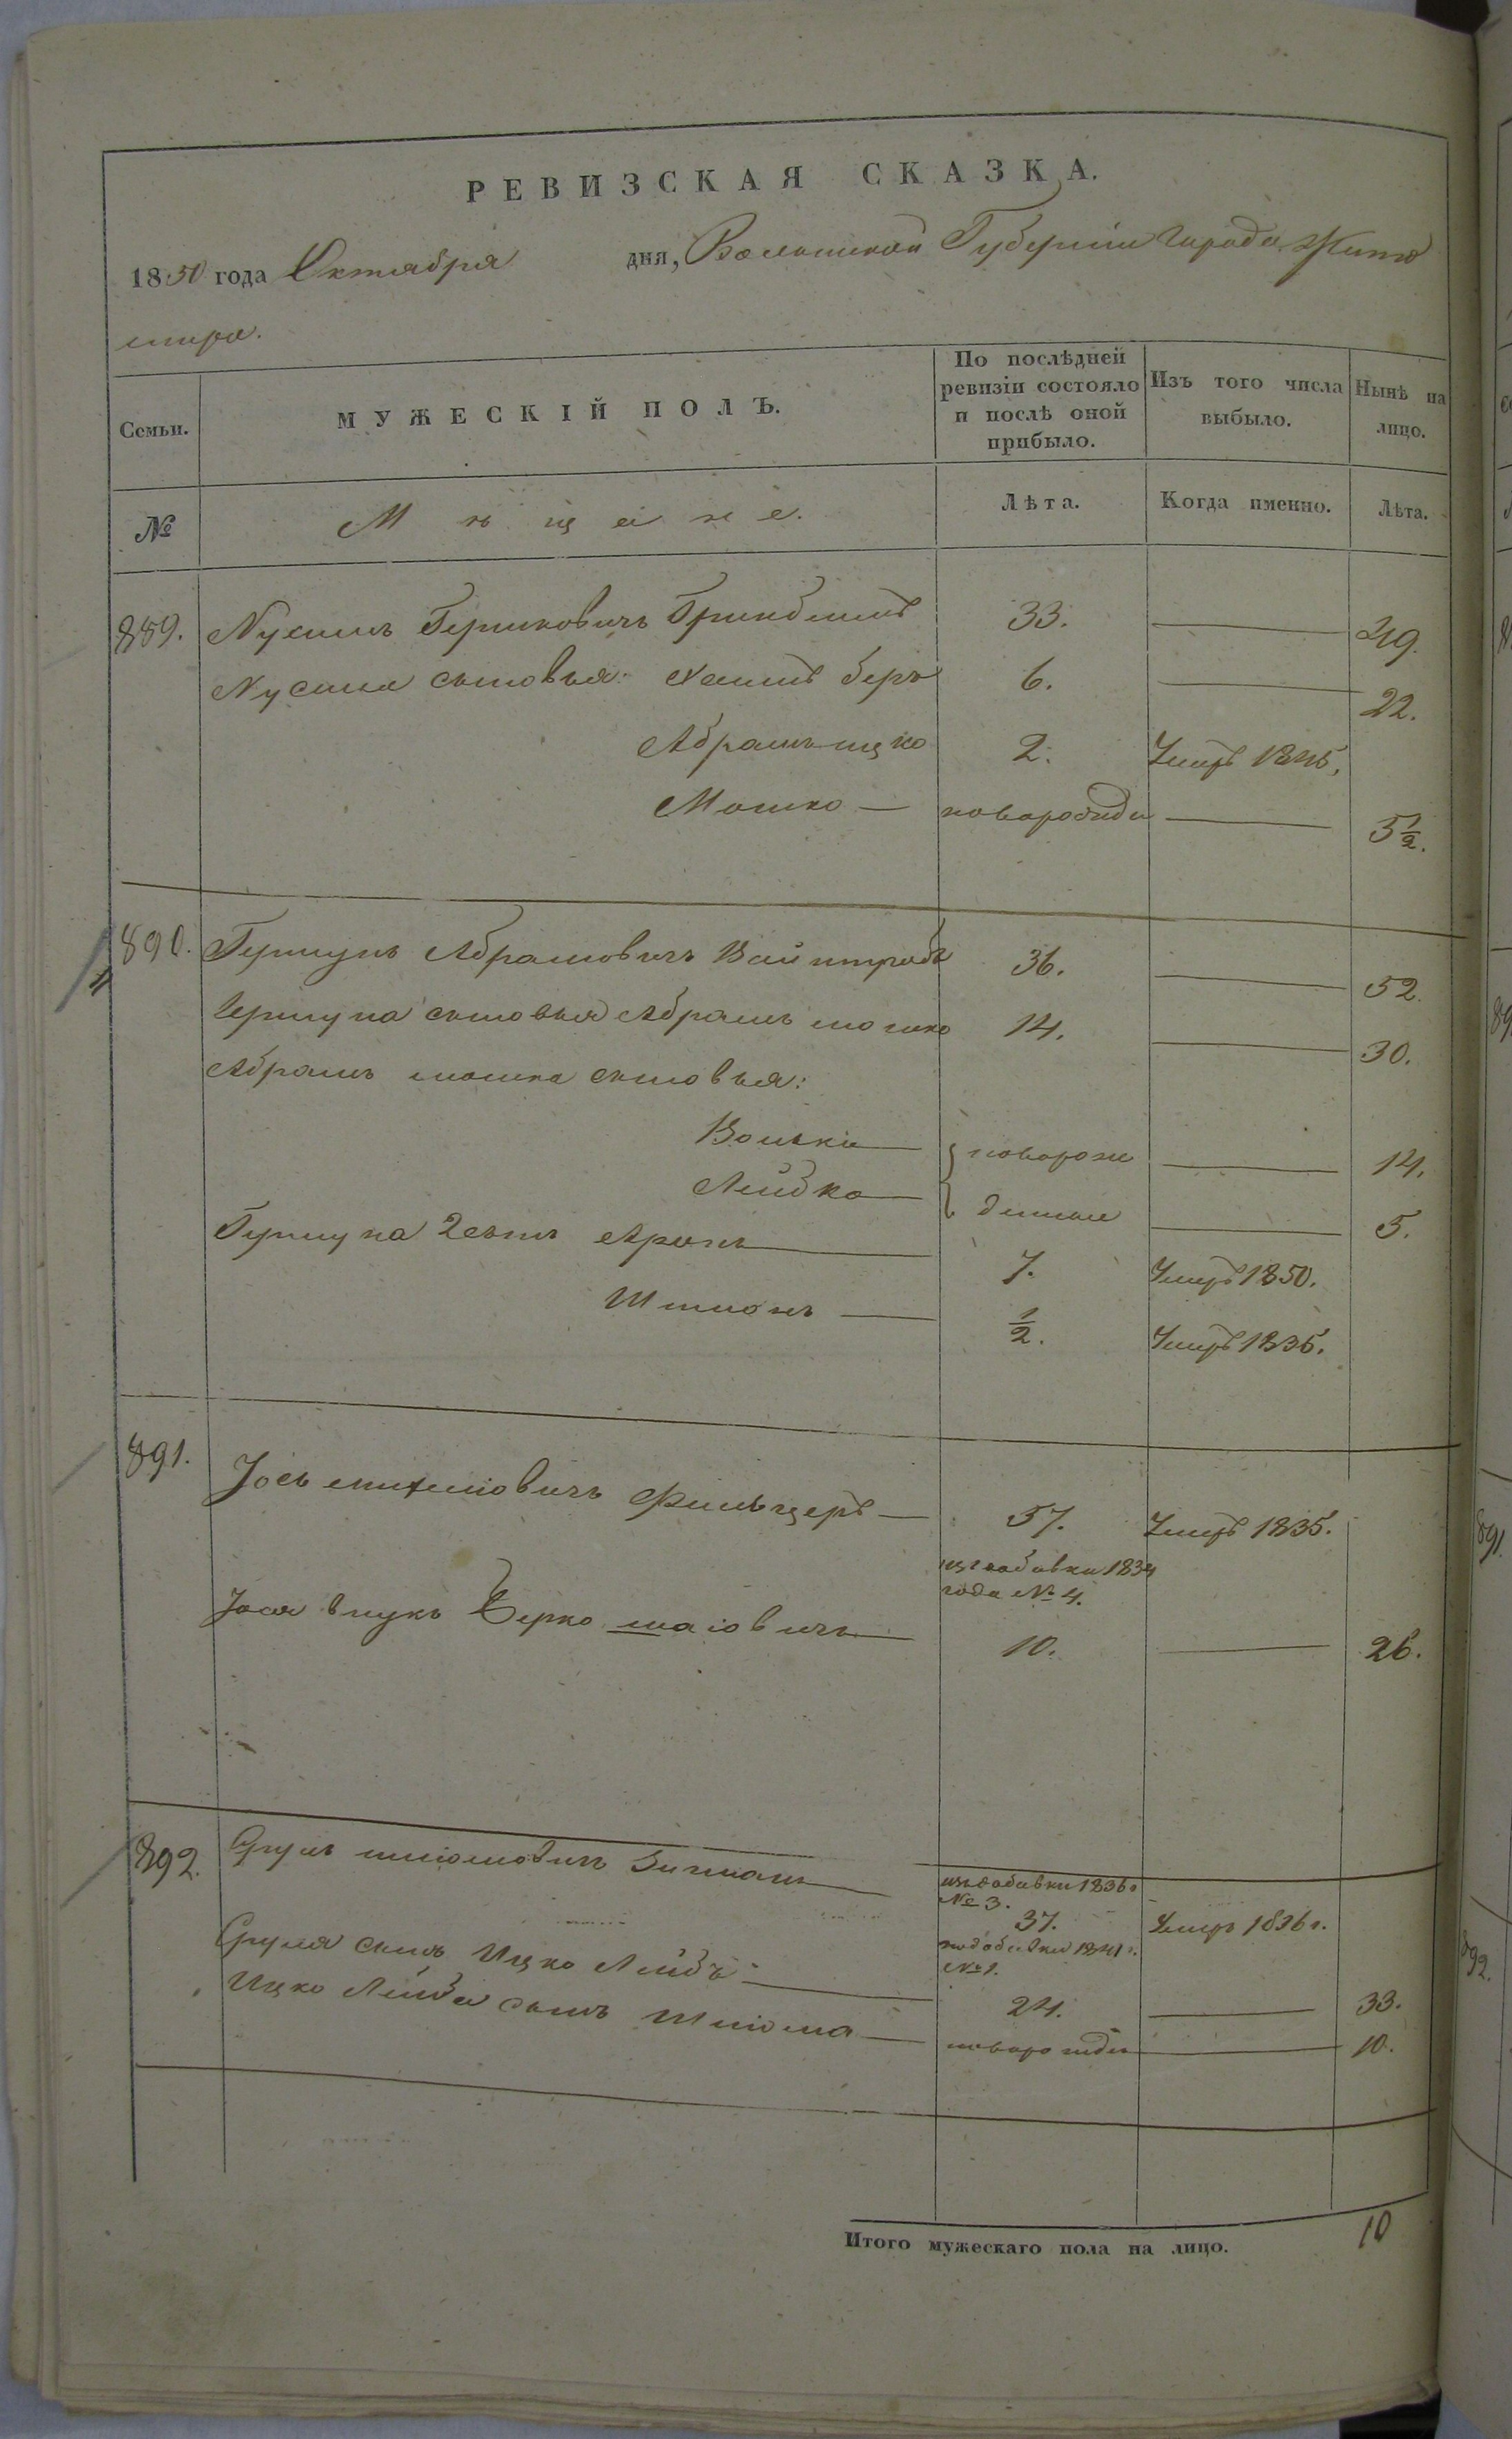 РЕВИЗСКАЯ СКАЗКА.
1850 года Октября дня, Волынской Губерніи города Жито
мира.
Семьи. МУЖЕСКІЙ ПОЛЪ. По послѣдней ревизіи состояло и послѣ оной прибыло. Изъ того числа выбыло. Нынѣ на лицо.
№ Мѣщане. Лѣта. Когда именно. Лѣта.
889. Нусимъ Гершковичъ 33. — 49.
Нусима сыновья: Беръ 6. — 22.
Абрамъ ицко 2. Умеръ 1845.
Мошко — новорожден — 5½.
890. Гершунъ Абрамовичъ Вайнтрубъ 36. — 52.
Гершуна сыновья Абрамъ мошко 14. — 30.
Абрамъ мошка сыновья:
Волько — новорож — 14.
Лейбко — денные — 5.
Гершуна 2 сынъ Аронъ — 7. Умеръ 1850.
Шмионъ — ½. Умеръ 1835.
891. Іось Фильцеръ — 57. Умеръ 1835.
изъ добавки 1834
года № 4.
Іося внукъ Берко шаіовичъ — 10. — 26.
892. Сруль шліомовичъ Зигманъ —
изъ добавки 1836 г
№ 3.
37. Умеръ 1836 г.
по добавки 1841 г.
№ 1.
Сруля сынъ Ицко Лейбъ — 24. — 33.
Ицко Лейба сынъ Шліома — новорожден — 10.
Итого мужескаго пола на лицо. 10